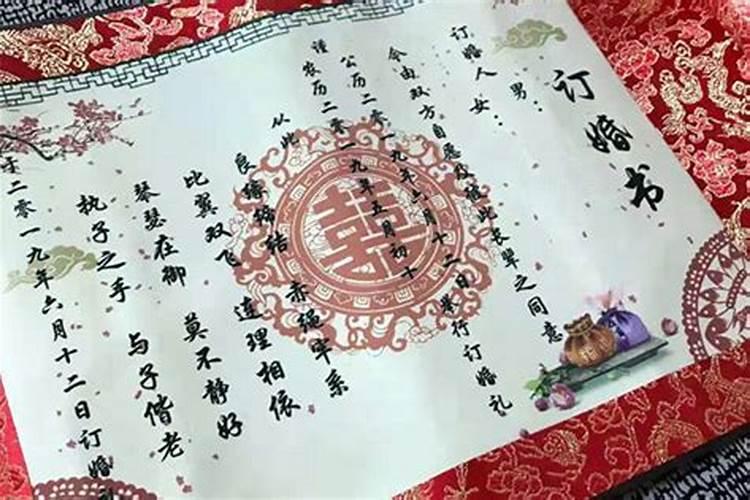 订婚书
订婚人 男:
女:
今由双方自愿及彼此长辈之同意
谨
公历二零一九年六月十二日举行订婚礼
农历二零一九年五月初十
从此
良缘缔结 赤绳牢系
比翼双飞 连理相依
琴瑟在御 莫不静好
执子之手 与子偕老
于二零一九年六月十二日订婚